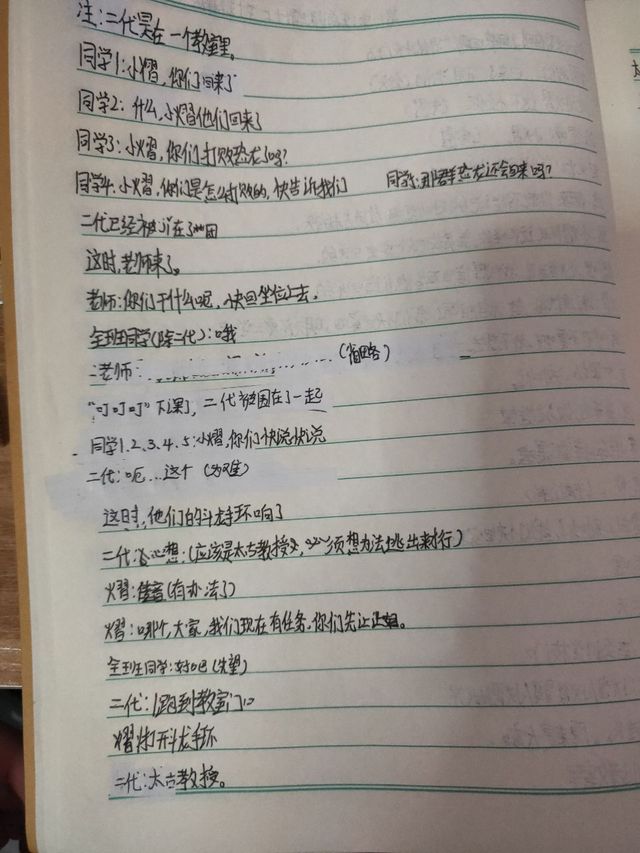 注:二代是在一个教室里。
同学1:小熠,你们回来了
同学2:什么,小熠他们回来了
同学3:小熠,你们打败恐龙了吗?
同学4:小熠,你们是怎么打败的,快告诉我们 同学5:那群恐龙还会回来吗?
二代已经被 在了 团
这时,老师来了。
老师:你们干什么呢,快回坐位上去。
全班同学(除二代):哦
老师: ............(省略)
"叮叮叮"下课了,二代被围在了一起
同学1、2、3、4、5:小熠,你们快说快说
二代:呃...这个(为难)
这时,他们的斗龙手环响了
二代:心想:(应该是太古教授,必须想办法逃出来才行)
熠:(有办法了)
熠:哪个,大家,我们现在有任务,你们先让让。
全班同学:好吧(失望)
二代:跑到教室门口
熠:打开斗龙手环
二代:太古教授。